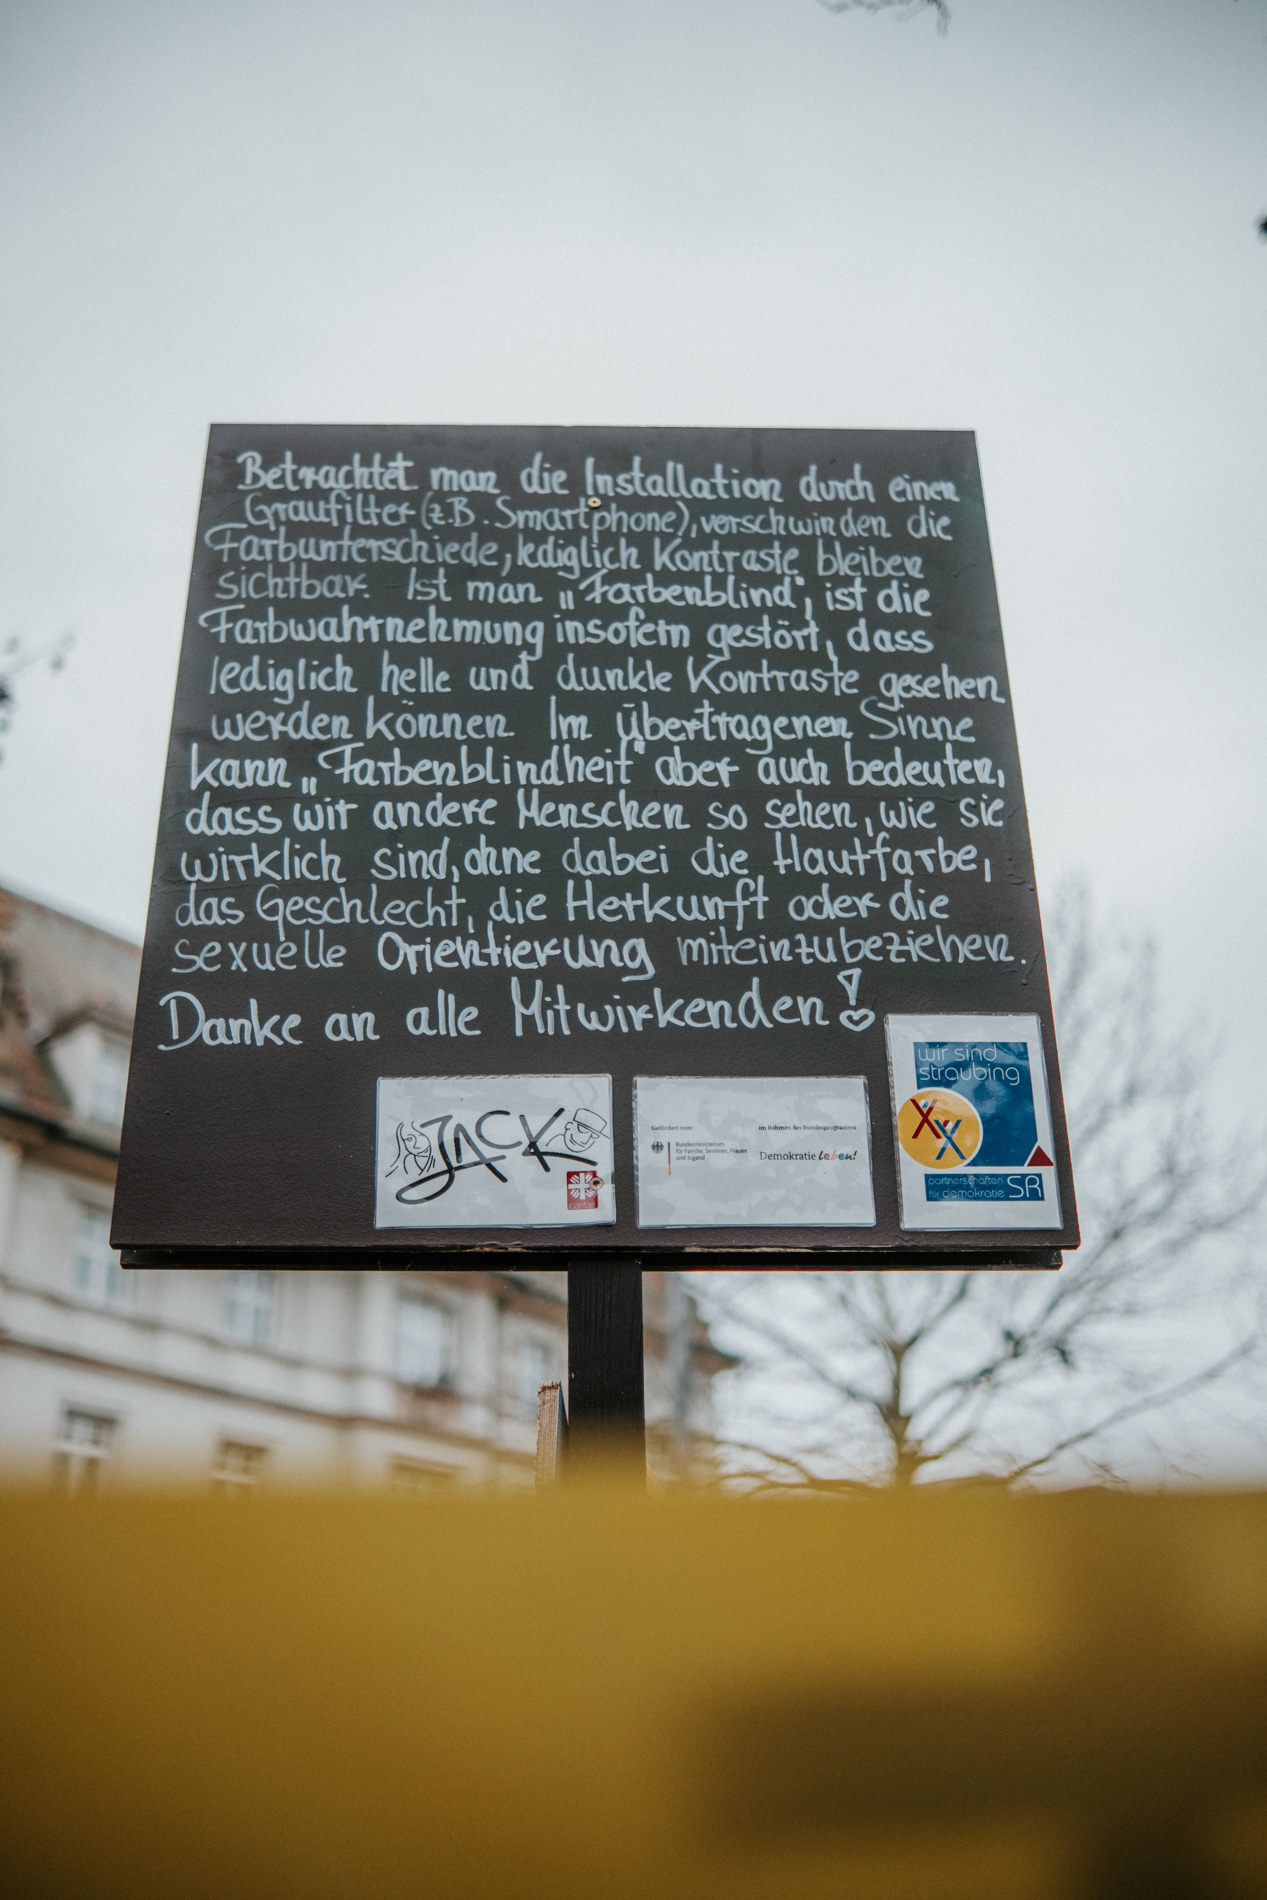 Betrachtet man die Installation durch einen
Graufilter (z.B. Smartphone), verschwinden die
Farbunterschiede, lediglich Kontraste bleiben
sichtbar. Ist man „Farbenblind", ist die
Farbwahrnehmung insofern gestört, dass
lediglich helle und dunkle Kontraste gesehen
werden können. Im übertragenen Sinne
kann „Farbenblindheit" aber auch bedeuten,
dass wir andere Menschen so sehen, wie sie
wirklich sind, ohne dabei die Hautfarbe,
das Geschlecht, die Herkunft oder die
sexuelle Orientierung miteinzubeziehen.
Danke an alle Mitwirkenden!
JACK
caritas
Gefördert vom
Bundesministerium
für Familie, Senioren, Frauen
und Jugend
im Rahmen des Bundesprogramms
Demokratie leben!
wir sind
straubing
XX
partnerschaften
für demokratie SR